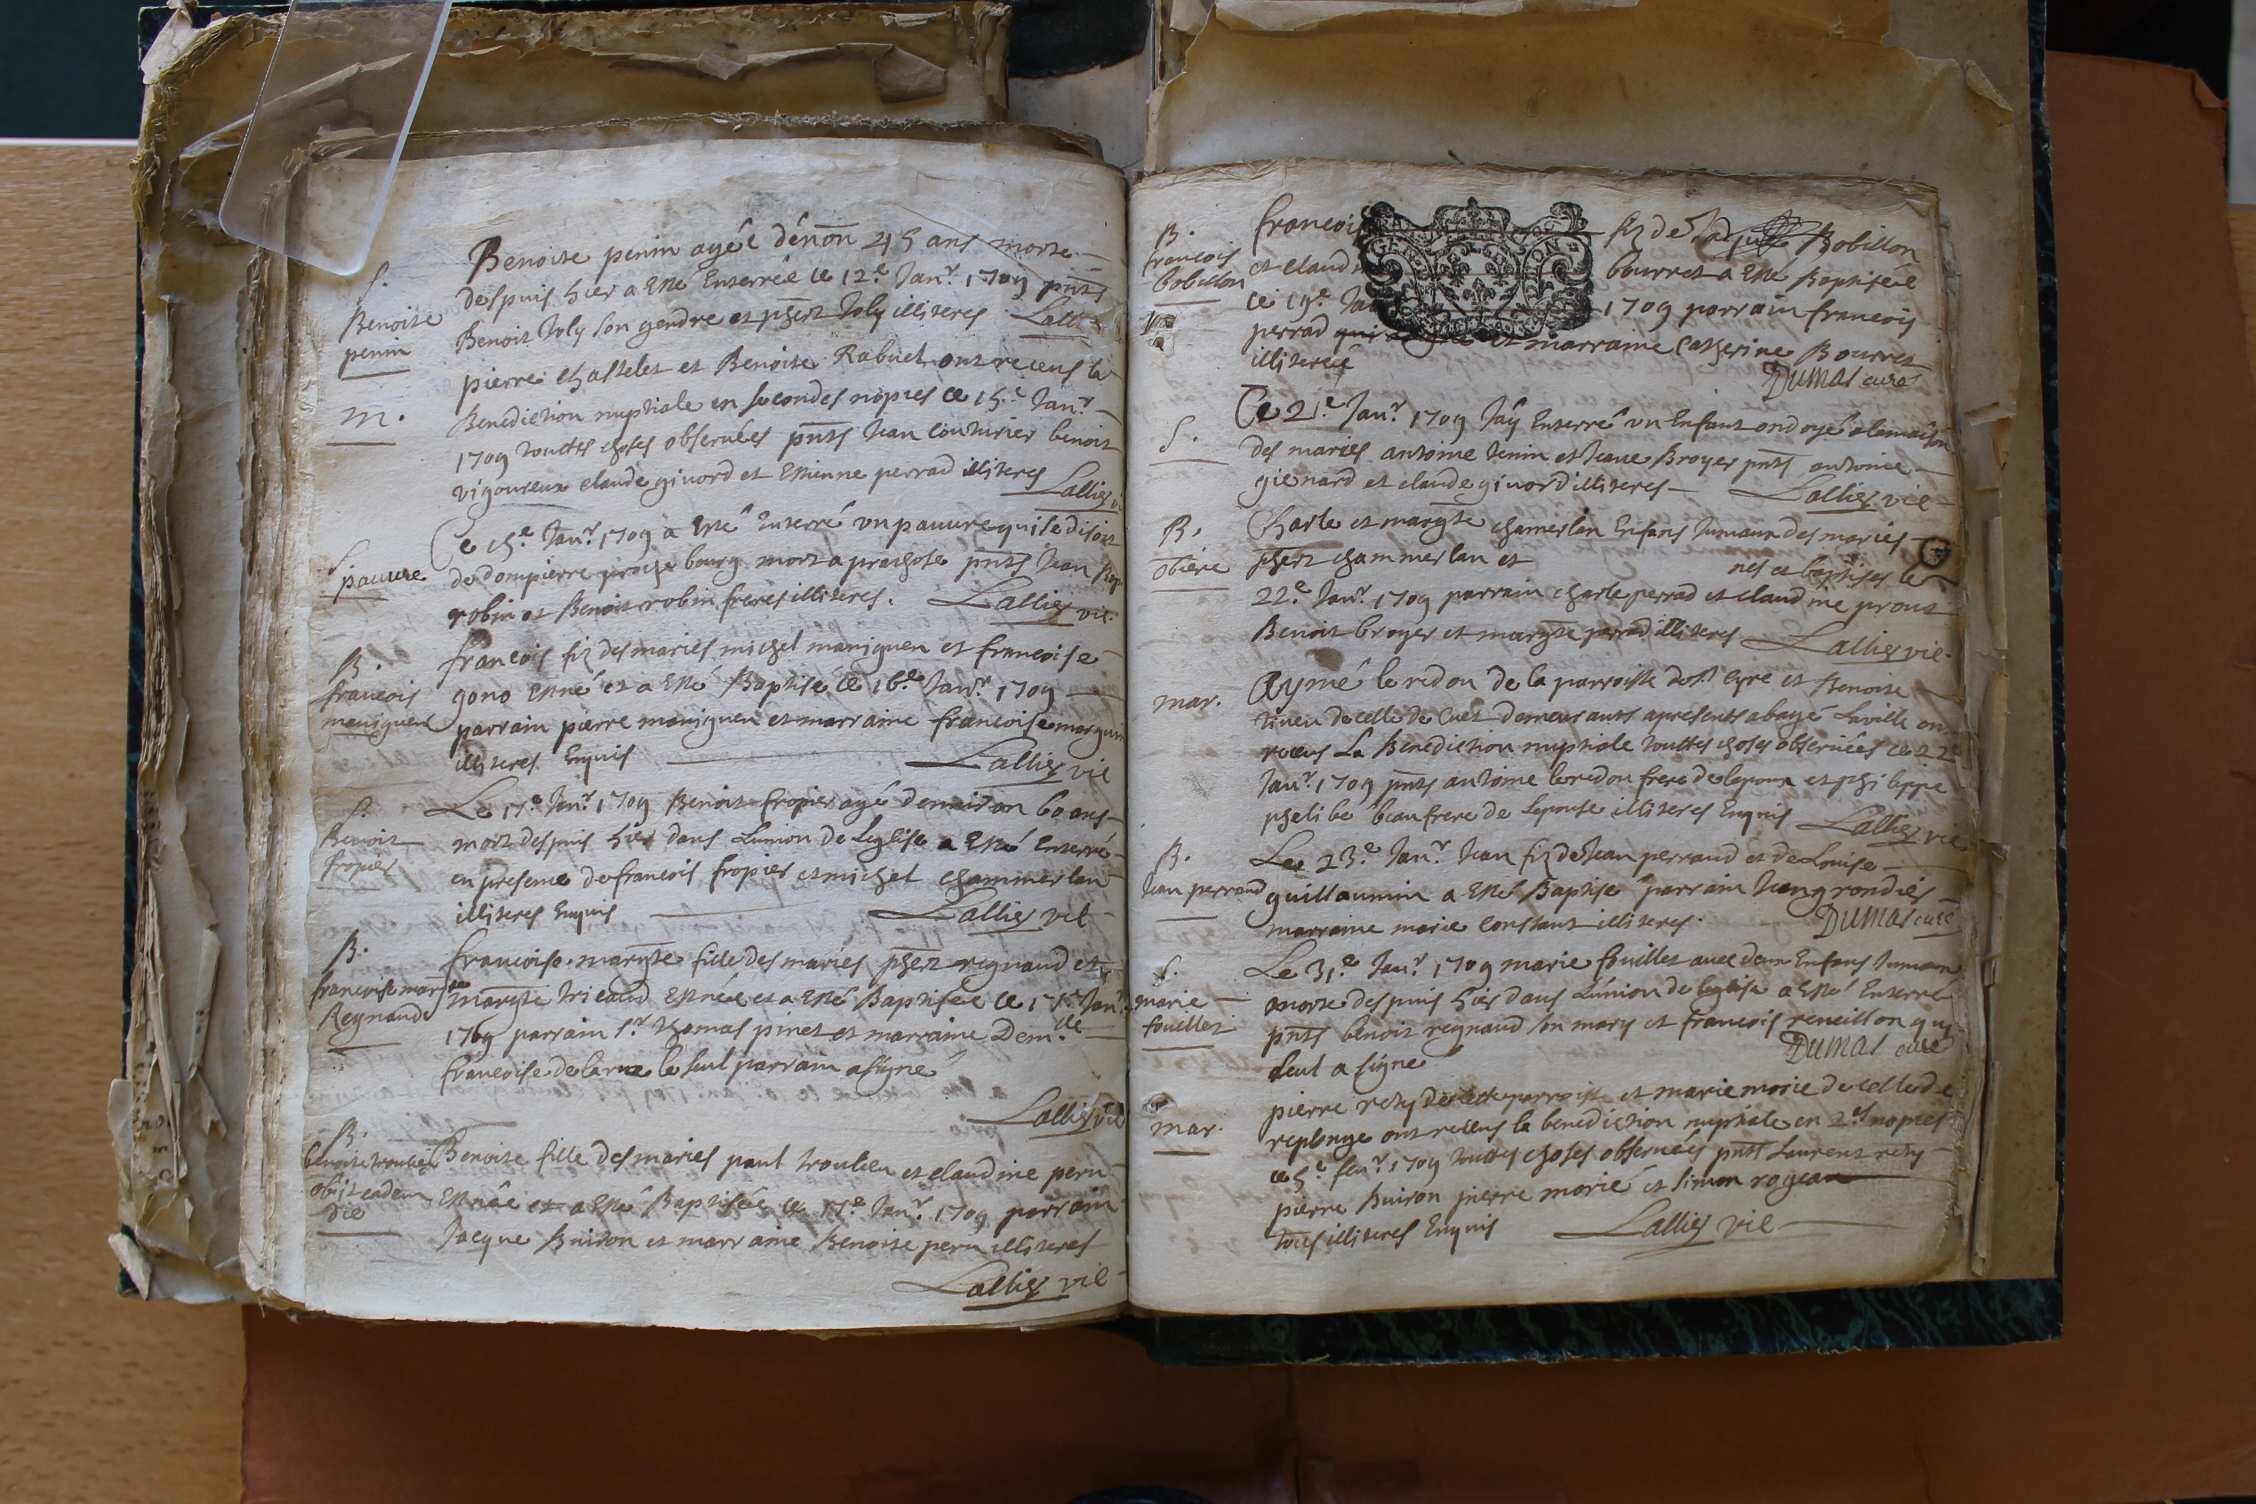 S.
Benoite
penin
Benoite penin agée d'énon 45 ans morte
despuis hier a esté Enterrée le 12.e Janr. 1709 pnts
Benoit Joly son gendre et phert Joly illiteres Lallier
m.
pierre chastelet et Benoite Rabuel ont receus la
Benediction nuptiale en secondes nopces ce 15.e Janr.
1709 touttes choses observées pnts Jean couturier benoit
vigoureux claude givord et Etienne perrad illiteres
Lallier vi
S
pauvre
Ce 15.e Janr. 1709 a esté Enterré un pauvre qui se disoit
de dompierre proche bourg mort a prachote pnts Jean
robin et Benoit robin freres illiteres. Lallier vic.
B.
francois
maniguen
francois fiz des maries michel maniguen et francoise
gono est né et a esté Baptise ce 16.e Janr. 1709
parrain pierre maniguen et marraine francoise marguin
illiteres Enquis Lallier vic
S.
Benoit
fropier
Le 17.e Janr. 1709 Benoit fropier agé d'environ 60 ans
mort despuis hier dans Lunion de Leglise a Esté Enterré
en presence de francois fropier et michel chammerlan
illiteres Enquis Lallier vic
B.
francoise margte
Regnaud
francoise margte fille des mariés phert regnaud et
margte tricaud est née et a esté Baptisée ce 17.e Janr.
1709 parrain Sr. thomas pinet et marraine Dem.lle
francoise delarue le seul parrain a signé
Lallier vic
B.
benoite troulieu
obiit eadem
die
Benoite fille des maries paul troulieu et claudine peru
est née et a esté Baptisée ce 17.e Janr. 1709 parrain
Jacque Buiron et marraine Benoite peru illiteres
Lallier vic
B.
francois
bobillon
francois fiz de Bobillon
et claud bourret a esté Baptiséé
ce 19.e Ja 1709 parrain francois
perrad et marraine Catherine Bourret
illiteree
Dumas curé
S.
Ce 21.e Janr. 1709 Jay Enterré un Enfant ondoyé a la maison
des maries antoine tenin et Jeane Broyer pnts antoine
gienard et claude givord illiteres Lallier vic
B.
obiere
Charle et margte chamerlan Enfans Jumaux des maries
phert chammerlan et nes et baptises le
22.e Janr. 1709 parrain charle perrad et claudine prout
Benoit broyer et margte perrad illiteres Lallier vic.
mar.
Aymé leredou de la parroisse de St. Cyre et Benoite
tiven de celle de Cuet demeurants apresents abagé Laville on
receus La Benediction nuptiale touttes choses observées ce 22
Janr. 1709 pnts antoine leredou frere de lepoux et philippe
phelibé beaufrere de Lepouse illiteres Enquis Lallier vic
B.
Jean perraud
Le 23.e Janr. Jean fiz de Jean perraud et de Louise
guillaumin a esté Baptise parrain Jean grondiés
marraine marie Constant illiteres. Dumas curé
S.
marie
fouillet
Le 31.e Janr. 1709 marie fouillet avec deux Enfans Jumaux
morte despuis hier dans Lunion de leglise a esté Enterré
pnts benoit regnaud son mary et francois reneillon qui
seul a signé Dumas curé
mar.
pierre rety de cette parroisse et marie morie de celle de
replonge ont receus la benediction nuptiale en 2.es nopces
ce 5.e fevr. 1709 touttes choses observées pnts Laurent rety
pierre Buiron pierre morié et simon rogeau
tous illiteres Enquis Lallier vic